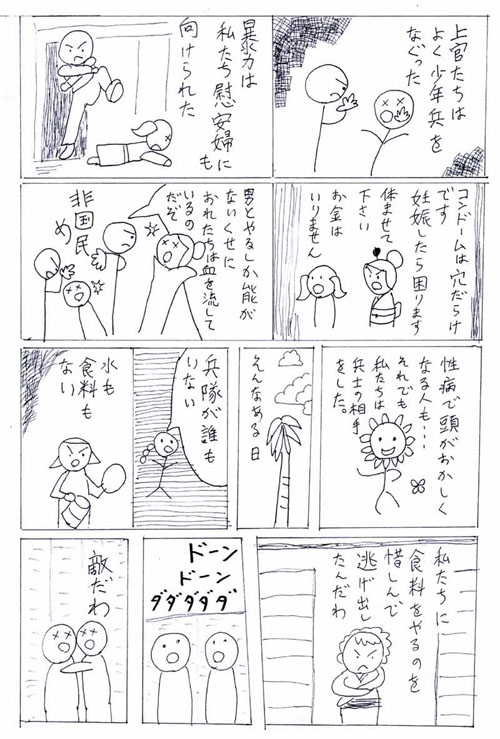 上官たちは
よく少年兵を
なぐった
暴力は
私たち慰安婦にも
向けられた
コンドームは穴だらけ
です
妊娠したら困ります
休ませて
下さい
お金は
いりません
男とやるしか能が
ないくせに
おれたちは血を流して
いるの
だぞ
非国民
め
性病で頭がおかしく
なる人も・・・
それでも
私たちは
兵士の相手
をした。
そんなある日
兵隊が誰も
いない
水も
食料も
ない
私たちに
食料をやるのを
惜しんで
逃げ出し
たんだわ
ドーン
ドーン
ダダダダダ
敵だわ